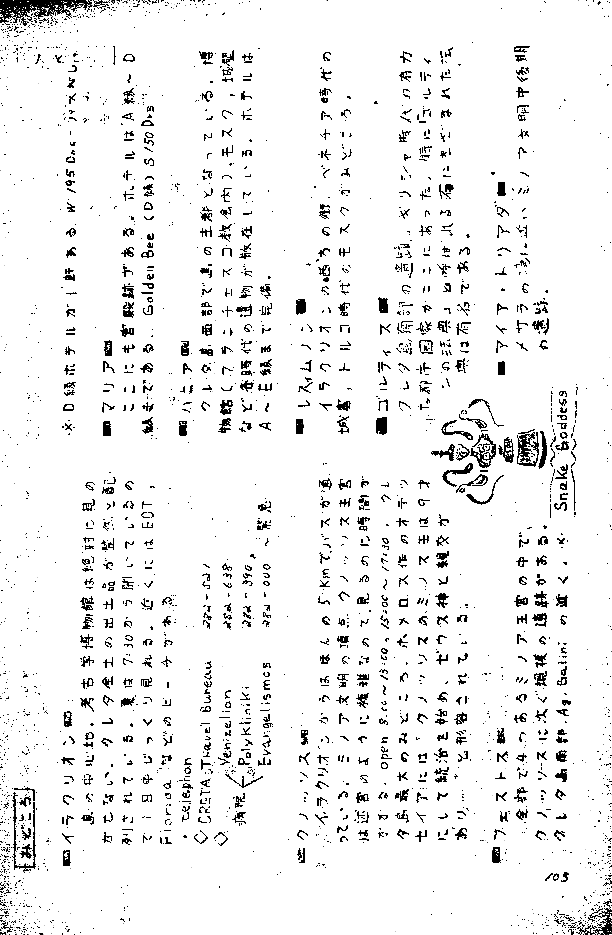 みどころ
■イラクリオン
島の中心地。考古学博物館は絶対に見の
がせない。クレタ全土の出土品が整然と配
列されている。夏は7:30から開いているの
で1日中じっくり見れる。近くにはEOT,
Floridaなどのビーチがある
・telephon
◇CRETA Travel Bureau 282-521
◇病院 Venizelion 282-638
Polykliniki 282-390
Evangelismos 282-000 〜緊急
■クノッソス
イラクリオンからほんの5kmで、バスが通
っている。ミノア文明の頂点クノッソス王宮
は迷宮のように複雑なので、見るのに時間が
かかる。open 8:00〜13:00, 15:00〜17:30。クレ
タ島最大のみどころ。ホメロス作のオデッ
セイアには「クノッソスのミノス王は9才
にして統治を始め、ゼウス神と親交が
あり…」と形容されている。
■フェストス
全部で4つあるミノア王宮の中で、
クノッソスに次ぐ規模の遺跡がある。
クレタ島南部 Ag. Galini の近く。
※D級ホテルが1軒ある W 195 Drs
■マリア
ここにも宮殿跡がある。ホテルはA級〜D
級まである。Golden Bee (D級) S 150 Drs
■ハニア
クレタ島西部で島の主都となっている。博
物館(フランチェスコ教会内)、モスク、城壁
など各時代の遺物が散在している。ホテルは
A〜E級まで完備。
■レスィムノン
イラクリオンの西方の街。ベネチア時代の
城塞、トルコ時代のモスクがみどころ。
■ゴルティス
クレタ島南部の遺跡。ギリシャ時代の有力
な都市国家がここにあった。特に「ゴルティ
ンの法典」と呼ばれる石にきざまれた法
典は有名である。
■アイア・トリアダ■
メサラの湾に近いミノア文明中後期
の遺跡。
Snake Goddess
103